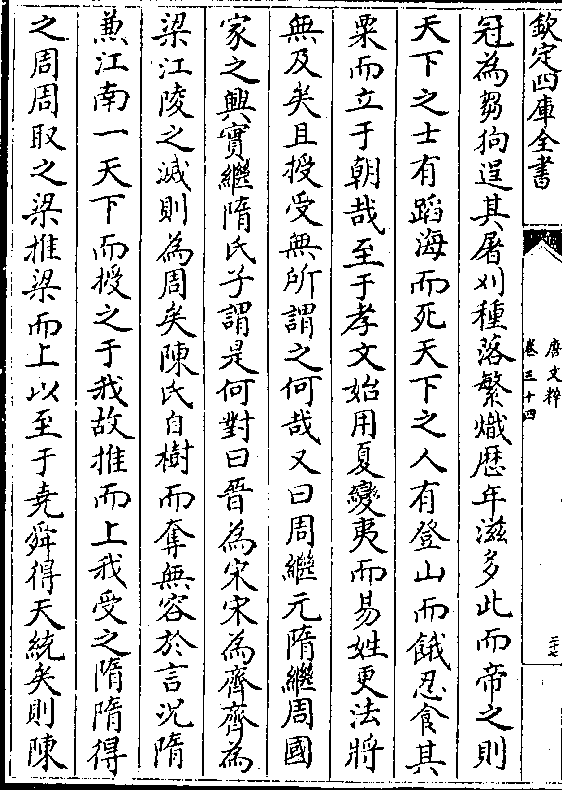 欽定四庫全書
唐文粹
卷三十四
二七
冠為芻狗逞其屠刈種落繁熾歴年滋多此而帝之則
天下之士有蹈海而死天下之人有登山而餓忍食其
粟而立于朝哉至于孝文始用夏變夷而易姓更法將
無及矣且授受無所謂之何哉又曰周繼元隋繼周國
家之興實繼隋氏子謂是何對曰晉為宋宋為齊齊為
梁江陵之滅則為周矣陳氏自樹而奪無容於言況隋
兼江南一天下而授之于我故推而上我受之隋隋得
之周周取之梁推梁而上以至于堯舜得天統矣則陳